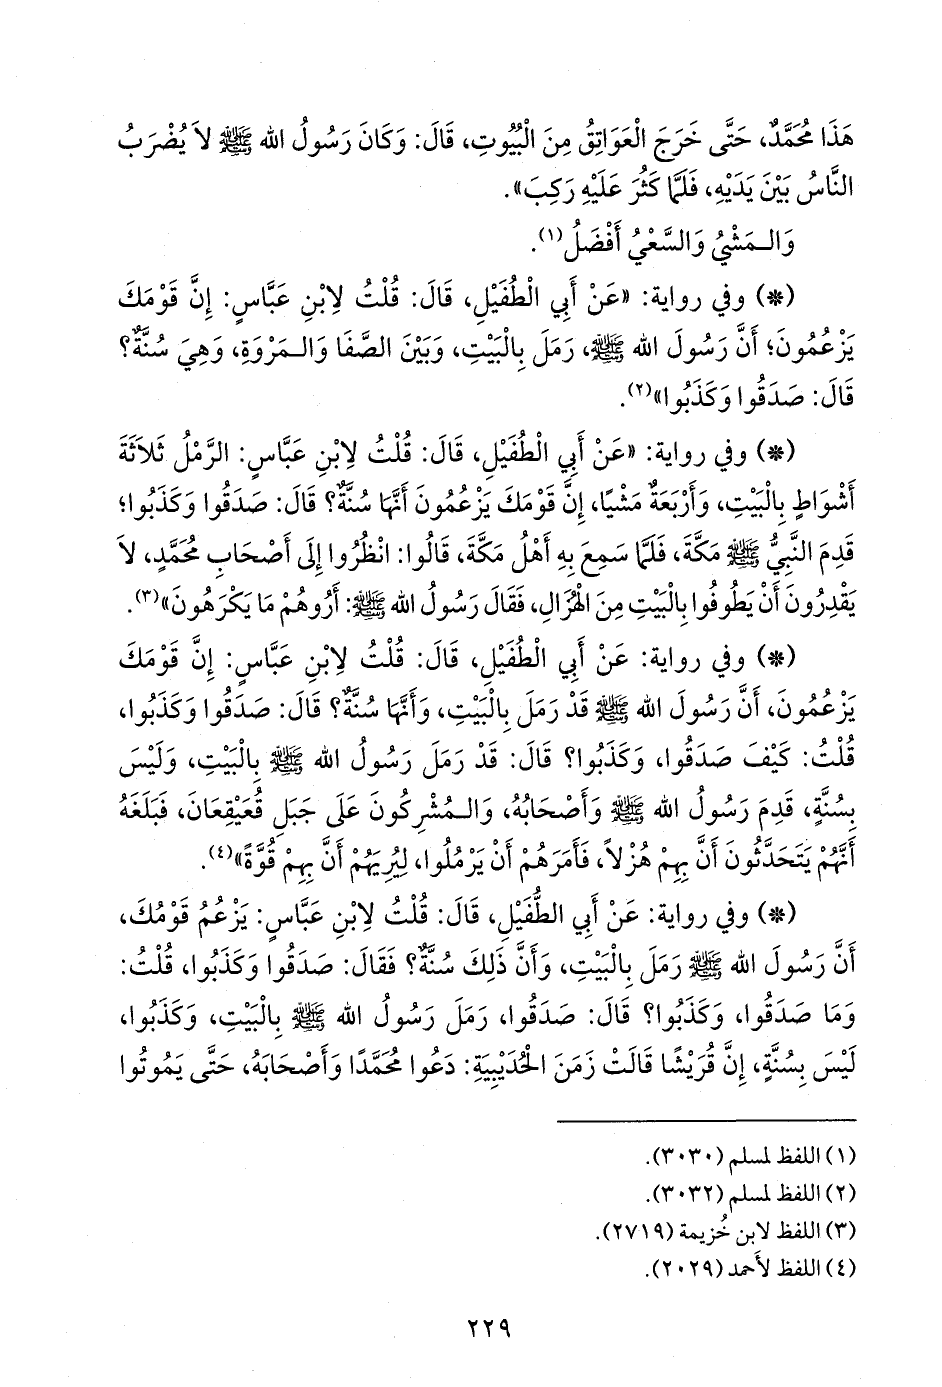 هَذَا مُحَمَّدٌ، حَتَّى خَرَجَ الْعَوَاتِقُ مِنَ الْبُيُوتِ، قَالَ: وَكَانَ رَسُولُ الله ﷺ لاَ يُضْرَبُ
النَّاسُ بَيْنَ يَدَيْهِ، فَلَمَّا كَثُرَ عَلَيْهِ رَكِبَ».
وَالـمَشْيُ وَالسَّعْيُ أَفْضَلُ(١).
(*) وفي رواية: «عَنْ أَبِي الْطُفَيْلِ، قَالَ: قُلْتُ لِابْنِ عَبَّاسٍ: إِنَّ قَوْمَكَ
يَزْعُمُونَ؛ أَنَّ رَسُولَ الله ﷺ، رَمَلَ بِالْبَيْتِ، وَبَيْنَ الصَّفَا وَالـمَرْوَةِ، وَهِيَ سُنَّةٌ؟
قَالَ: صَدَقُوا وَكَذَبُوا»(٢).
(*) وفي رواية: «عَنْ أَبِي الْطُفَيْلِ، قَالَ: قُلْتُ لِابْنِ عَبَّاسٍ: الرَّمْلُ ثَلاَثَةَ
أَشْوَاطٍ بِالْبَيْتِ، وَأَرْبَعَةٌ مَشْيًا، إِنَّ قَوْمَكَ يَزْعُمُونَ أَنَّهَا سُنَّةٌ؟ قَالَ: صَدَقُوا وَكَذَبُوا؛
قَدِمَ النَّبِيُّ ﷺ مَكَّةَ، فَلَمَّا سَمِعَ بِهِ أَهْلُ مَكَّةَ، قَالُوا: انْظُرُوا إِلَى أَصْحَابِ مُحَمَّدٍ، لاَ
يَقْدِرُونَ أَنْ يَطُوفُوا بِالْبَيْتِ مِنَ الْهُزَالِ، فَقَالَ رَسُولُ الله ﷺ: أَرُوهُمْ مَا يَكْرَهُونَ»(٣).
(*) وفي رواية: عَنْ أَبِي الْطُفَيْلِ، قَالَ: قُلْتُ لِابْنِ عَبَّاسٍ: إِنَّ قَوْمَكَ
يَزْعُمُونَ، أَنَّ رَسُولَ الله ﷺ قَدْ رَمَلَ بِالْبَيْتِ، وَأَنَّهَا سُنَّةٌ؟ قَالَ: صَدَقُوا وَكَذَبُوا،
قُلْتُ: كَيْفَ صَدَقُوا، وَكَذَبُوا؟ قَالَ: قَدْ رَمَلَ رَسُولُ الله ﷺ بِالْبَيْتِ، وَلَيْسَ
بِسُنَّةٍ، قَدِمَ رَسُولُ الله ﷺ وَأَصْحَابُهُ، وَالـمُشْرِكُونَ عَلَى جَبَلِ قُعَيْقِعَانَ، فَبَلَغَهُ
أَنَّهُمْ يَتَحَدَّثُونَ أَنَّ بِهِمْ هُزْلاً، فَأَمَرَهُمْ أَنْ يَرْمُلُوا، لِيُرِيَهُمْ أَنَّ بِهِمْ قُوَّةً»(٤).
(*) وفي رواية: عَنْ أَبِي الطُّفَيْلِ، قَالَ: قُلْتُ لِابْنِ عَبَّاسٍ: يَزْعُمُ قَوْمُكَ،
أَنَّ رَسُولَ الله ﷺ رَمَلَ بِالْبَيْتِ، وَأَنَّ ذَلِكَ سُنَّةٌ؟ فَقَالَ: صَدَقُوا وَكَذَبُوا، قُلْتُ:
وَمَا صَدَقُوا، وَكَذَبُوا؟ قَالَ: صَدَقُوا، رَمَلَ رَسُولُ الله ﷺ بِالْبَيْتِ، وَكَذَبُوا،
لَيْسَ بِسُنَّةٍ، إِنَّ قُرَيْشًا قَالَتْ زَمَنَ الْحُدَيْبِيَةِ: دَعُوا مُحَمَّدًا وَأَصْحَابَهُ، حَتَّى يَمُوتُوا
(١) اللفظ لمسلم (٣٠٣٠).
(٢) اللفظ لمسلم (٣٠٣٢).
(٣) اللفظ لابن خُزيمة (٢٧١٩).
(٤) اللفظ لأَحمد (٢٠٢٩).
٢٢٩